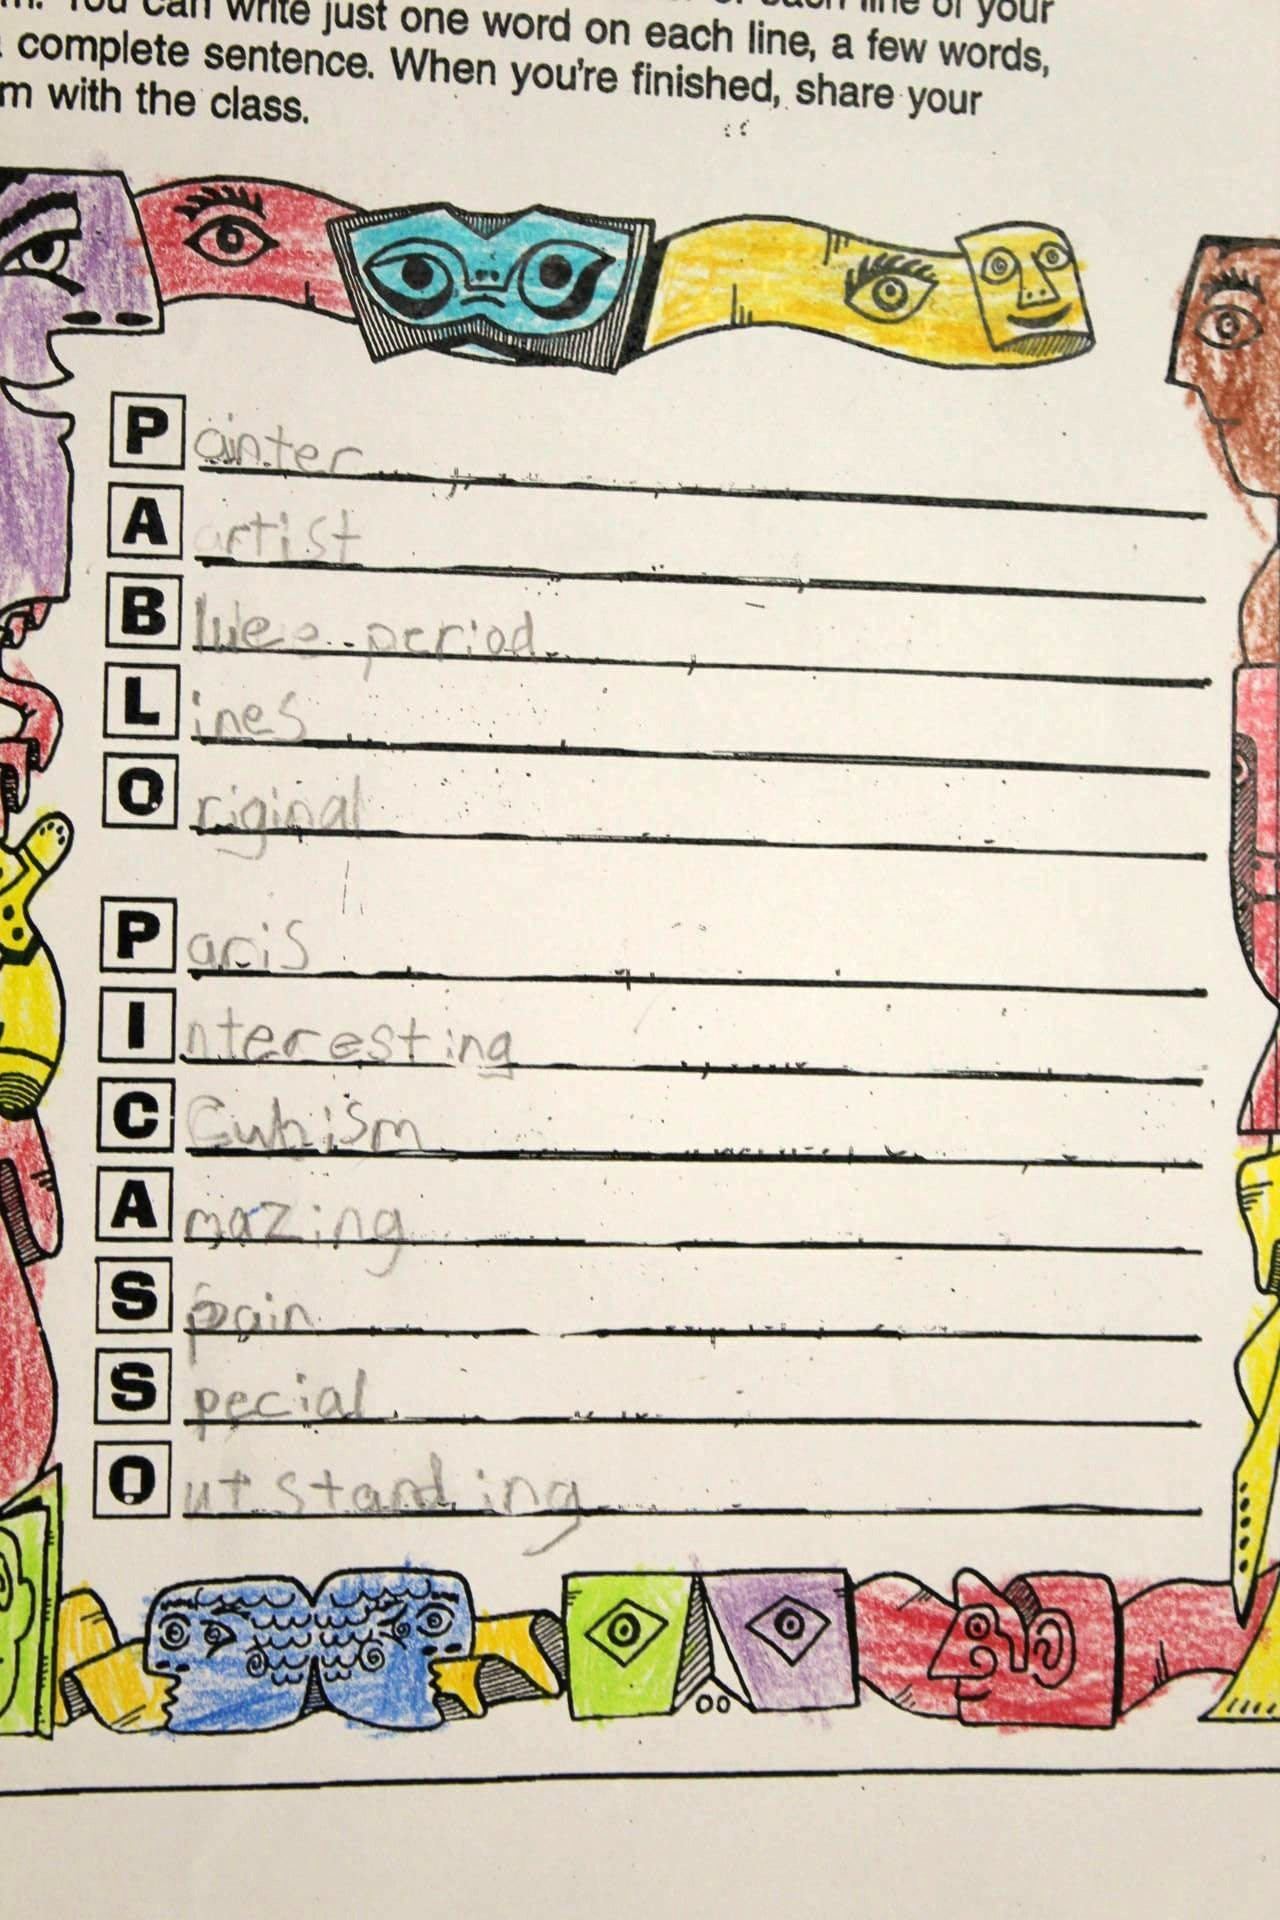 You can write just one word on each line, a few words,
complete sentence. When you're finished, share your
with the class.
Painter
Aartist
Blue period
Lines
Original
Paris
Interesting
CCubism
Amazing
Spain
Special
Outstanding